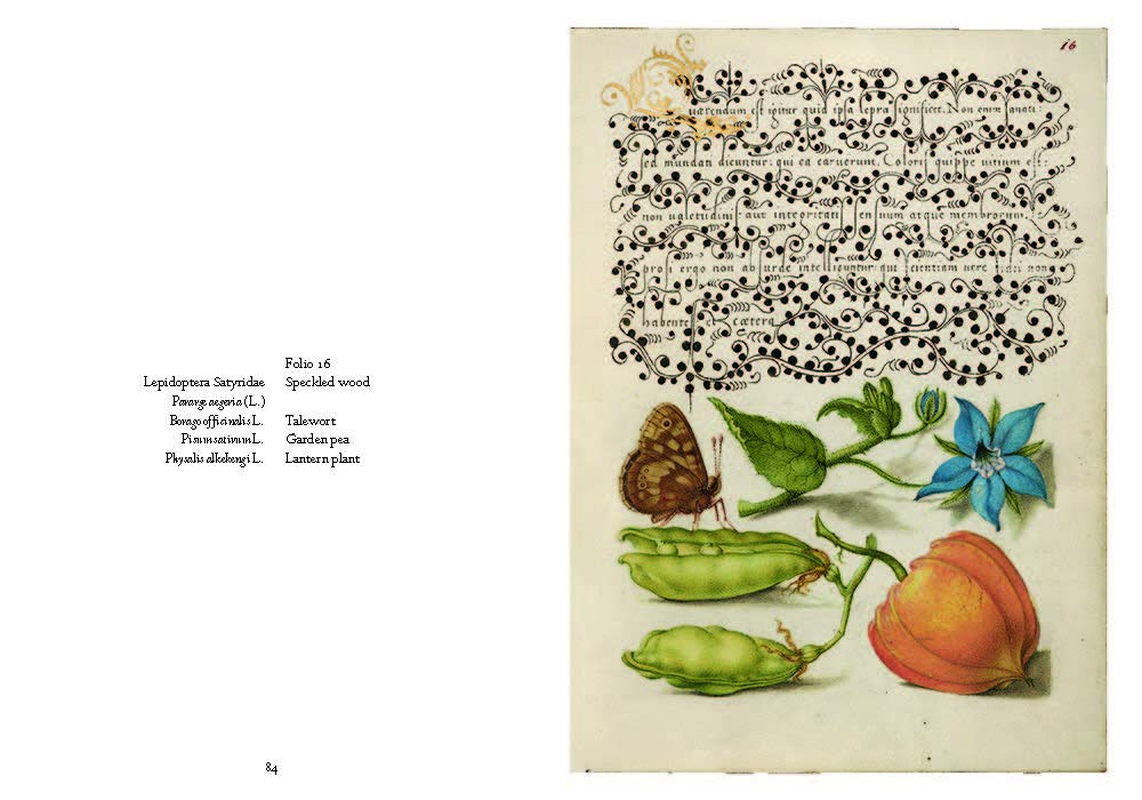 Folio 16
Lepidoptera Satyridae Speckled wood
Pararge aegeria (L.)
Borago officinalis L. Talewort
Pisum sativum L. Garden pea
Physalis alkekengi L. Lantern plant
84
16
Quærendum est igitur quid ipsa lepra significet. Non enim sanati:
sed mundati dicuntur: qui ea caruerunt. Coloris quippe uitium est:
non ualetudinis aut integritatis sensuum atque membrorum.
Leprosi ergo non absurde intelliguntur: qui scientiam uere fidei non
habentes et cætera